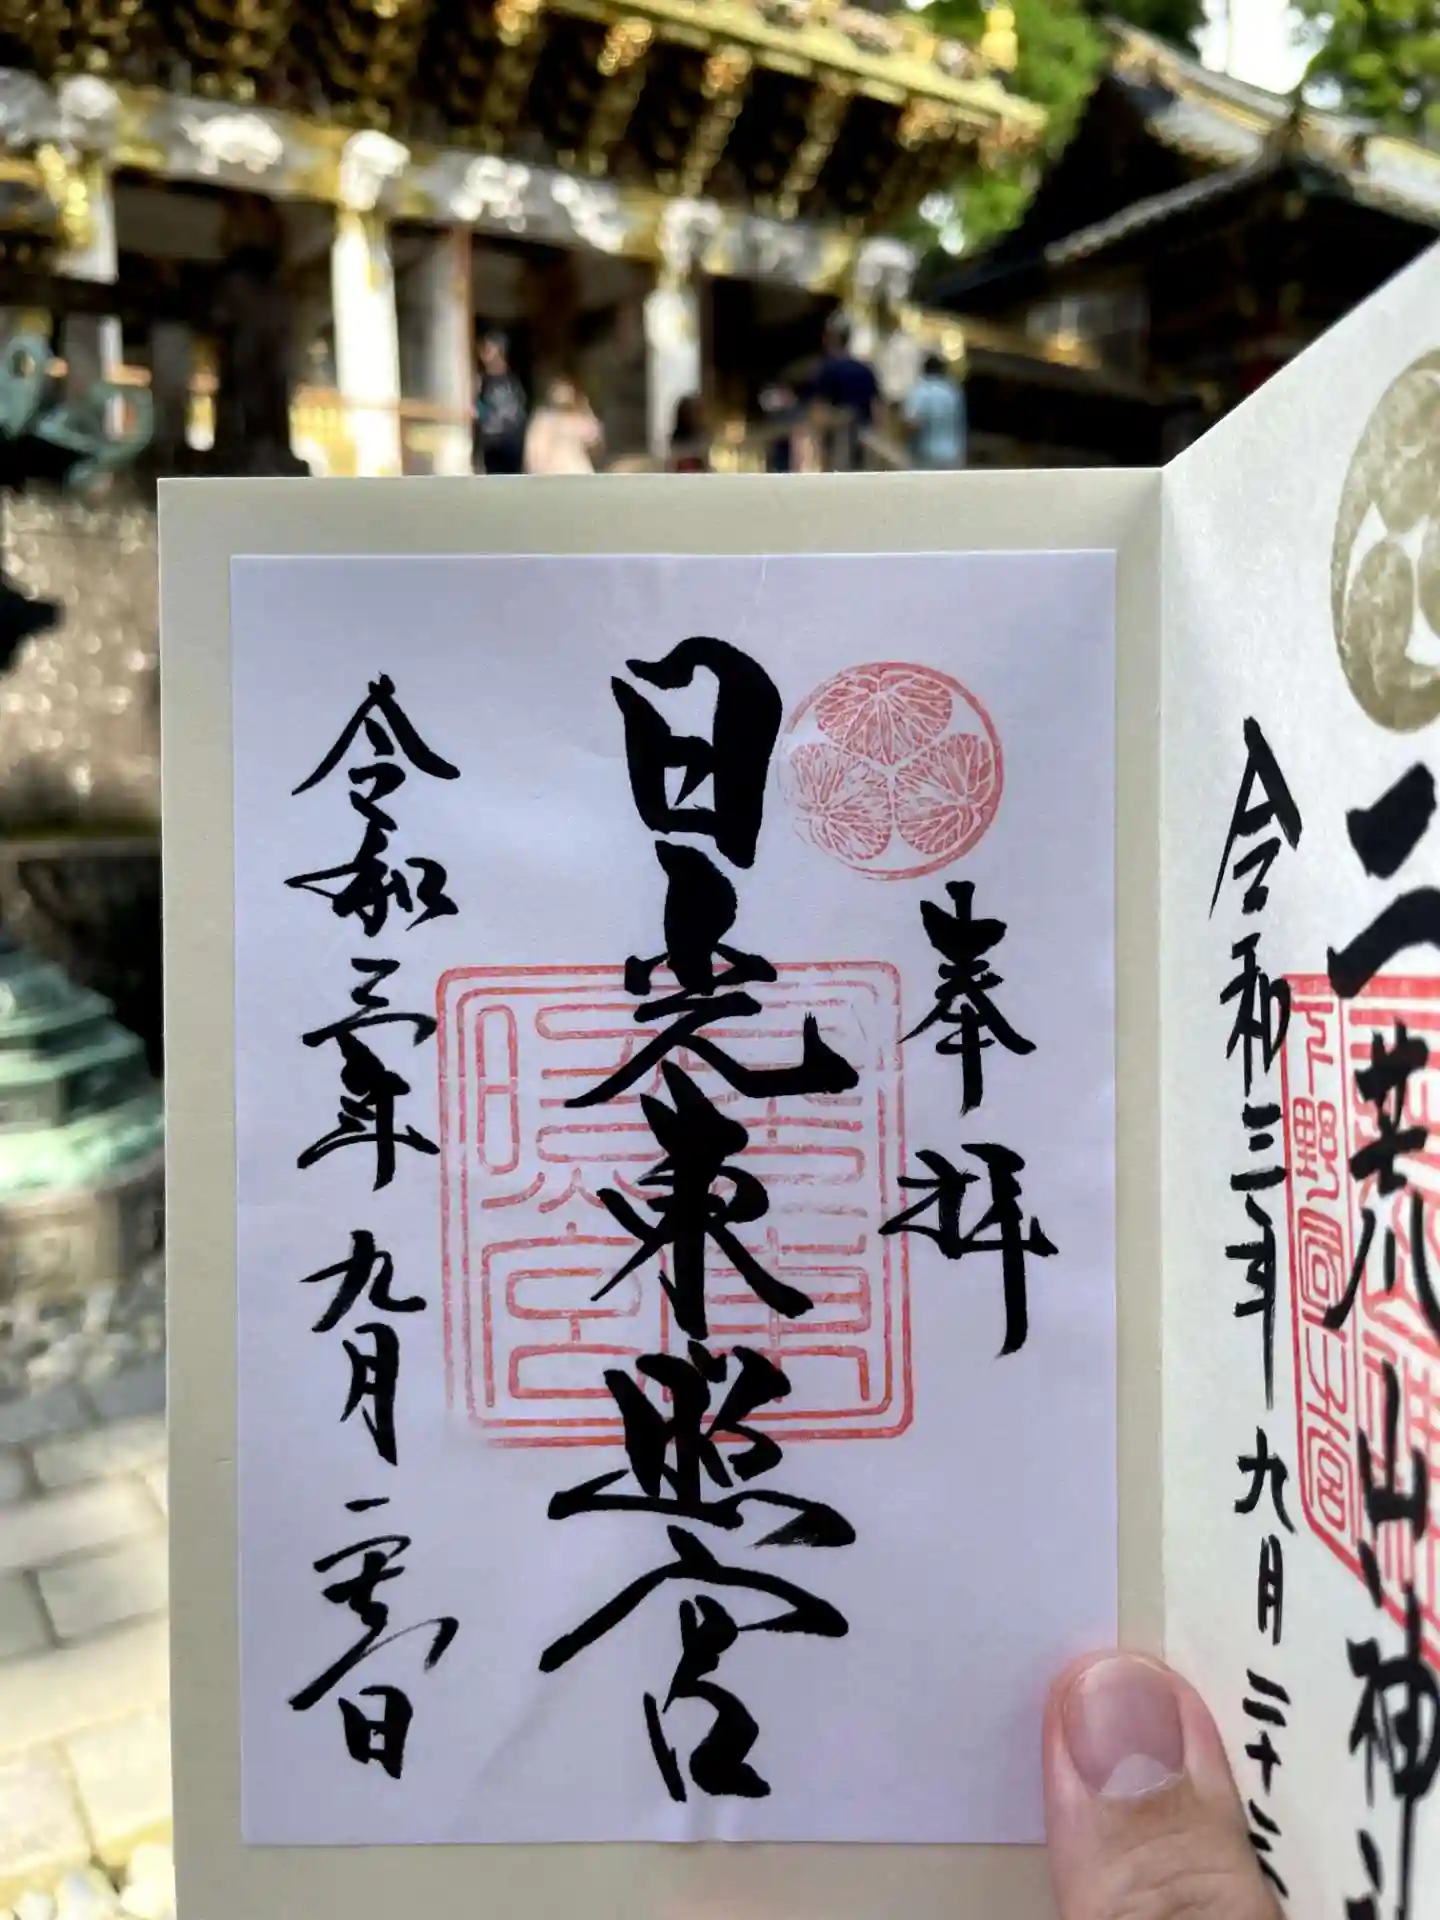 二荒山神
令和三年九月二十三
奉拝
日光東照宮
令和三年九月二十三日